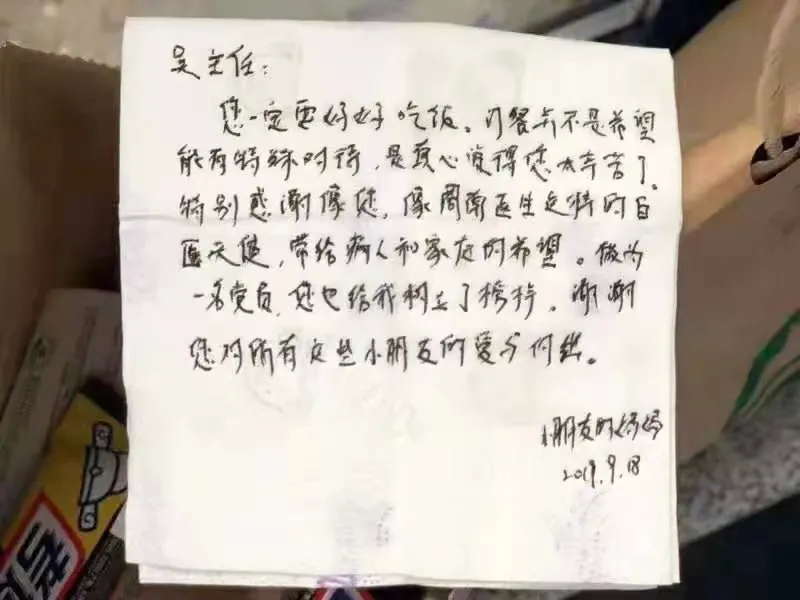 吴主任：
您一定要好好吃饭。订餐卡不是希望
能有特殊对待，是真心觉得您太辛苦了。
特别感谢像您，像周南医生这样的白
医天使，带给病人和家庭的希望。做为
一名党员，您也给我树立了榜样。谢谢
您对所有这些小朋友的爱与付出。
小朋友的妈妈
2019.9.18